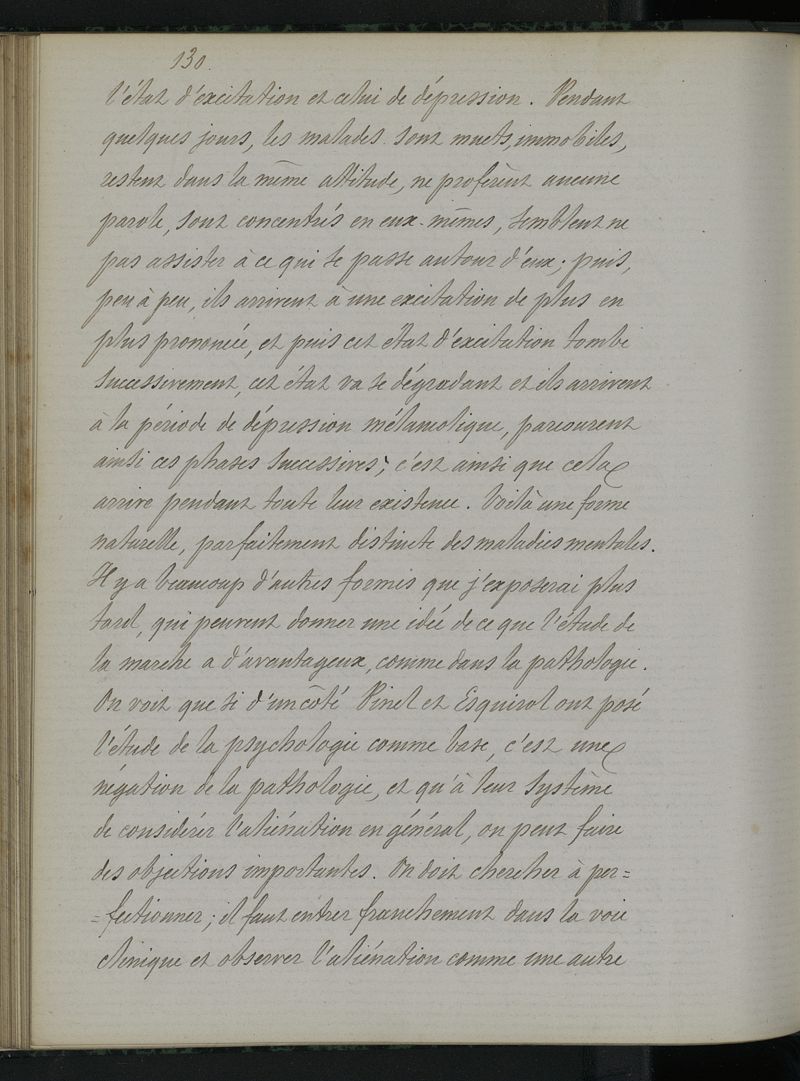 130.
l'état d'excitation et celui de dépression. Pendant
quelques jours, les malades sont muets, immobiles,
restent dans la même attitude, ne profèrent aucune
parole, sont concentrés en eux-mêmes, semblent ne
pas assister à ce qui se passe autour d'eux; puis,
peu à peu, ils arrivent à une excitation de plus en
plus prononcée, et puis cet état d'excitation tombe
successivement, cet état va se dégradant et ils arrivent
à la période de dépression mélancolique, parcourent
ainsi ces phases successives; c'est ainsi que cela
arrive pendant toute leur existence. Voilà une forme
naturelle, parfaitement distincte des maladies mentales.
Il y a beaucoup d'autres formes que j'exposerai plus
tard, qui peuvent donner une idée de ce que l'étude de
la marche a d'avantageux, comme dans la pathologie.
On voit que si d'un côté Pinel et Esquirol ont posé
l'étude de la psychologie comme base, c'est une
négation de la pathologie, et qu'à leur système
de considérer l'aliénation en général, on peut faire
des objections importantes. On doit chercher à per=
=fectionner; il faut entrer franchement dans la voie
clinique et observer l'aliénation comme une autre